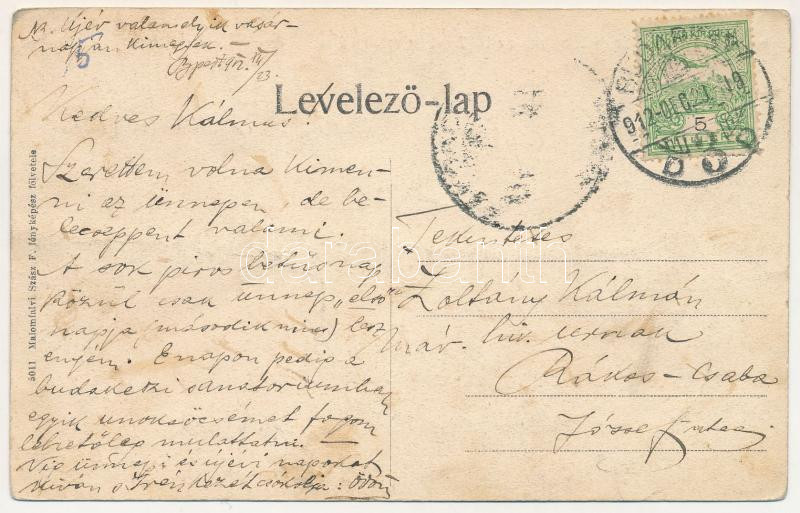 Az Újév valamelyik vasár-
napján kimegyek. —
Bpest 912. XII/23.
5
Levelező-lap
Kedves Kálmán!
Szerettem volna kimen-
ni az ünnepen, de be-
lecseppent valami.
A sok piros betűs nap
közül csak ünnep „első"
napja (második nincs) lesz
enyém. E napon pedig a
budakeszi sanatoriumban
egyik unokaöcsémet fogom
lehetőleg mulattatni. —
Víg ünnepi és újévi napokat
kíván s Irén kezét csókolja: Ödön
5011 Malomfalvi Szász F. fényképész fölvétele
5
912
Tekintetes
Zoltány Kálmán
máv. hiv. urnak
Rákos-Csaba
József
darabanth